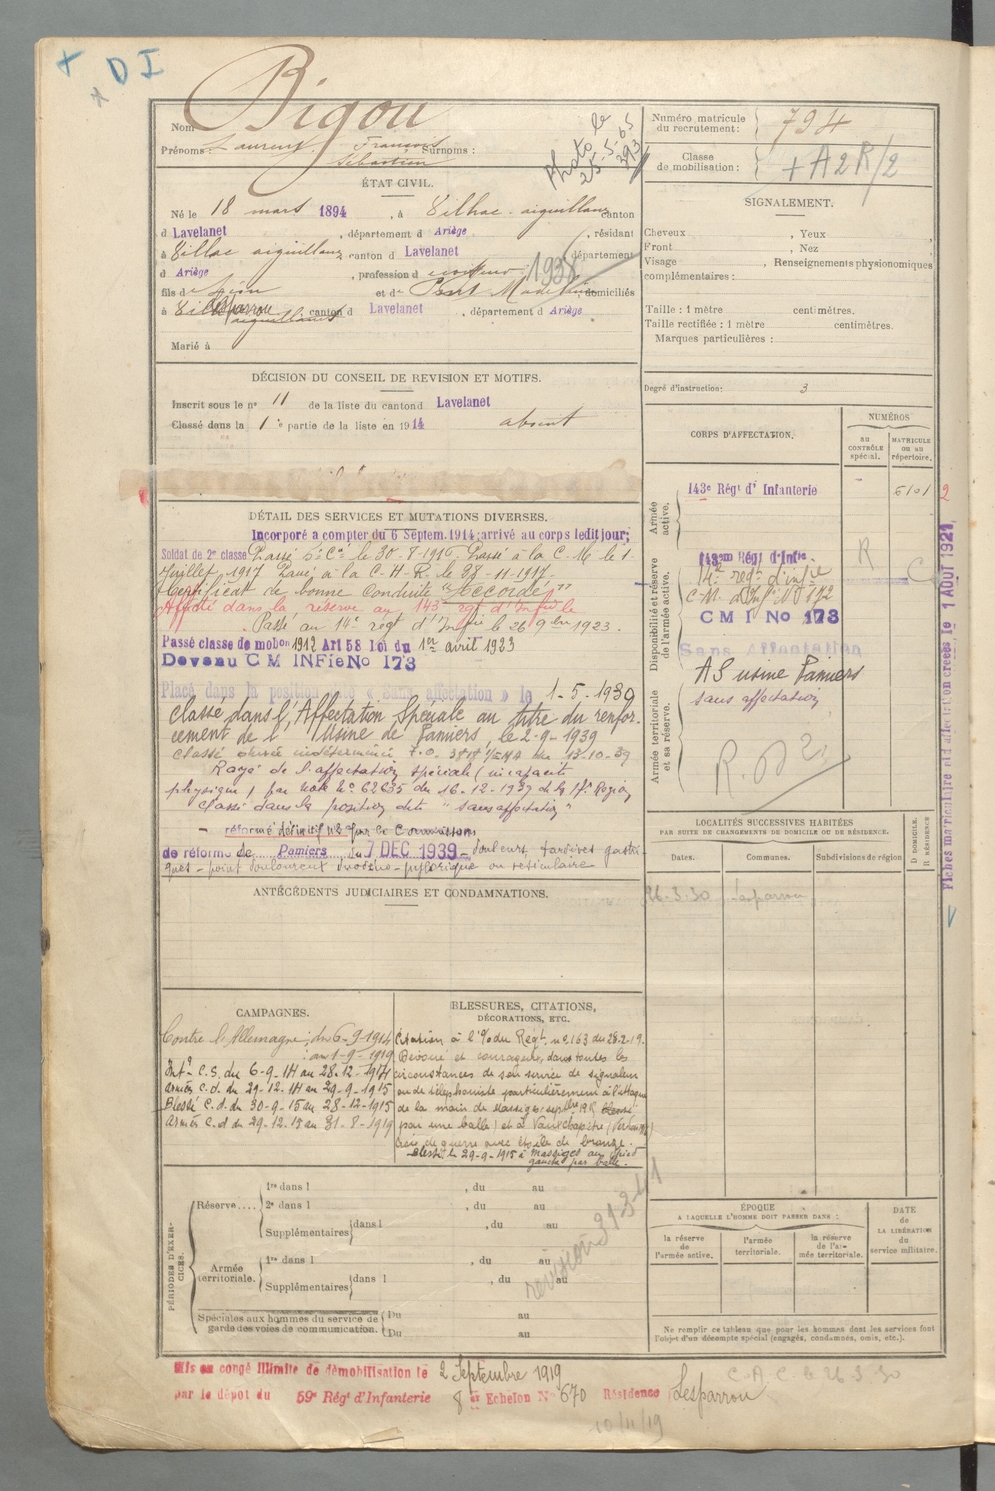 + D I
Nom Bigou
Prénoms : Laurent, François Surnoms :
Sébastien
Photo le
25.5.65
ÉTAT CIVIL.
Né le 18 mars 1894, à Vilhac-aiguillanes canton
d Lavelanet, département d Ariège, résidant
à Villac aiguillanes canton d Lavelanet département
d Ariège, profession d
1938
fils de et de Pont Madeleine domiciliés
à Lesparrou canton d Lavelanet, département d Ariège
aiguillanes
Marié à
DÉCISION DU CONSEIL DE REVISION ET MOTIFS.
Inscrit sous le n° 11 de la liste du canton d Lavelanet
Classé dans la 1re partie de la liste en 1914 absent
DÉTAIL DES SERVICES ET MUTATIONS DIVERSES.
Incorporé a compter du 6 Septem. 1914; arrivé au corps ledit jour;
Soldat de 2e classe Passé Cie le 30-8-1916. Passé à la C.M. le 1
Juillet 1917 Passé à la C.H.R. le 28-11-1917.
Certificat de bonne conduite "Accordé"
Affecté dans la réserve au 143e régt d'Infie le
Passé au 14e régt d'Infie le 26 9bre 1923.
Passé classe de mobon 1912 Art 58 loi du 1er avril 1923
Devenu C M INFie No 173
Placé dans la position dite « Sans affectation » le 1-5-1939
Classé dans l'Affectation Spéciale au titre du renfor-
cement de l'Usine de Pamiers, le 2-9-1939
Classé durée indéterminée du 13-10-39
Rayé de l'affectation spéciale (incapacité
physique) par note No 62635 du 16-12-1939 de la 17e Région
Classé dans la position dite "sans affectation"
- réformé définitif n°2 par la Commission
de réforme de Pamiers du 7 DEC 1939 - douleurs tardives gastri-
ques - point douloureux duodéno-pylorique ou vésiculaire
ANTÉCÉDENTS JUDICIAIRES ET CONDAMNATIONS.
CAMPAGNES.
Contre l'Allemagne; du 6-9-1914
au 1-9-1919
Int° - C.S. du 6-9-14 au 28-12-1914
Armées C.d. du 29-12-14 au 29-9-1915
Blessé C.d. du 30-9-15 au 28-12-1915
Armées C.d du 29-12-15 au 31-8-1919
BLESSURES, CITATIONS,
DÉCORATIONS, ETC.
Citation à l'O/ du Régt. n° 163 du 28-2-19.
Dévoué et courageux, dans toutes les
circonstances de son service de signaleur
ou de téléphoniste particulièrement à l'attaque
de la main de Massiges, septbre 1915 (blessé
par une balle) et à Vauxchapitre (Verdun)
Croix de guerre avec étoile de bronze.
Blessé le 29-9-1915 à Massiges au pied
gauche par balle.
PÉRIODES D'EXERCICES.
Réserve....
1re dans l , du au
2e dans l , du au
Supplémentaires dans l , du au
Armée territoriale.
1re dans l , du au
Supplémentaires dans l , du au
Spéciales aux hommes du service de garde des voies de communication.
Du au
Du au
revision 313
Mis en congé illimité de démobilisation le 2 Septembre 1919
par le dépôt du 59e Régt d'Infanterie 8e Echelon No 670 Résidence Lesparrou
10/11/19
C.A.C. le 26.3.30
Numéro matricule
du recrutement : 794
Classe
de mobilisation : + A2R/2
SIGNALEMENT.
Cheveux , Yeux ,
Front , Nez
Visage , Renseignements physionomiques
complémentaires :
Taille : 1 mètre centimètres.
Taille rectifiée : 1 mètre centimètres.
Marques particulières :
Degré d'instruction : 3
CORPS D'AFFECTATION.
NUMÉROS
AU CONTRÔLE spécial.
MATRICULE ou au répertoire.
Armée active.
143e Régt d'Infanterie
6101
2
Disponibilité et réserve de l'armée active.
143em Régt d'Infie
14e regt d'infie
R
C
C M I No 173
Sans Affectation
Armée territoriale et sa réserve.
AS usine Pamiers
sans affectation
LOCALITÉS SUCCESSIVES HABITÉES
PAR SUITE DE CHANGEMENTS DE DOMICILE OU DE RÉSIDENCE.
D DOMICILE.
R RÉSIDENCE
Dates.
Communes.
Subdivisions de région
26.3.30 Lesparrou
ÉPOQUE
A LAQUELLE L'HOMME DOIT PASSER DANS :
la réserve de l'armée active.
l'armée territoriale.
la réserve de l'armée territoriale.
DATE
de
LA LIBÉRATION
du
service militaire.
Ne remplir ce tableau que pour les hommes dont les services font
l'objet d'un décompte spécial (engagés, condamnés, omis, etc.).
Fiches matriculaire et d'affectation créées le 1 AOUT 1921.